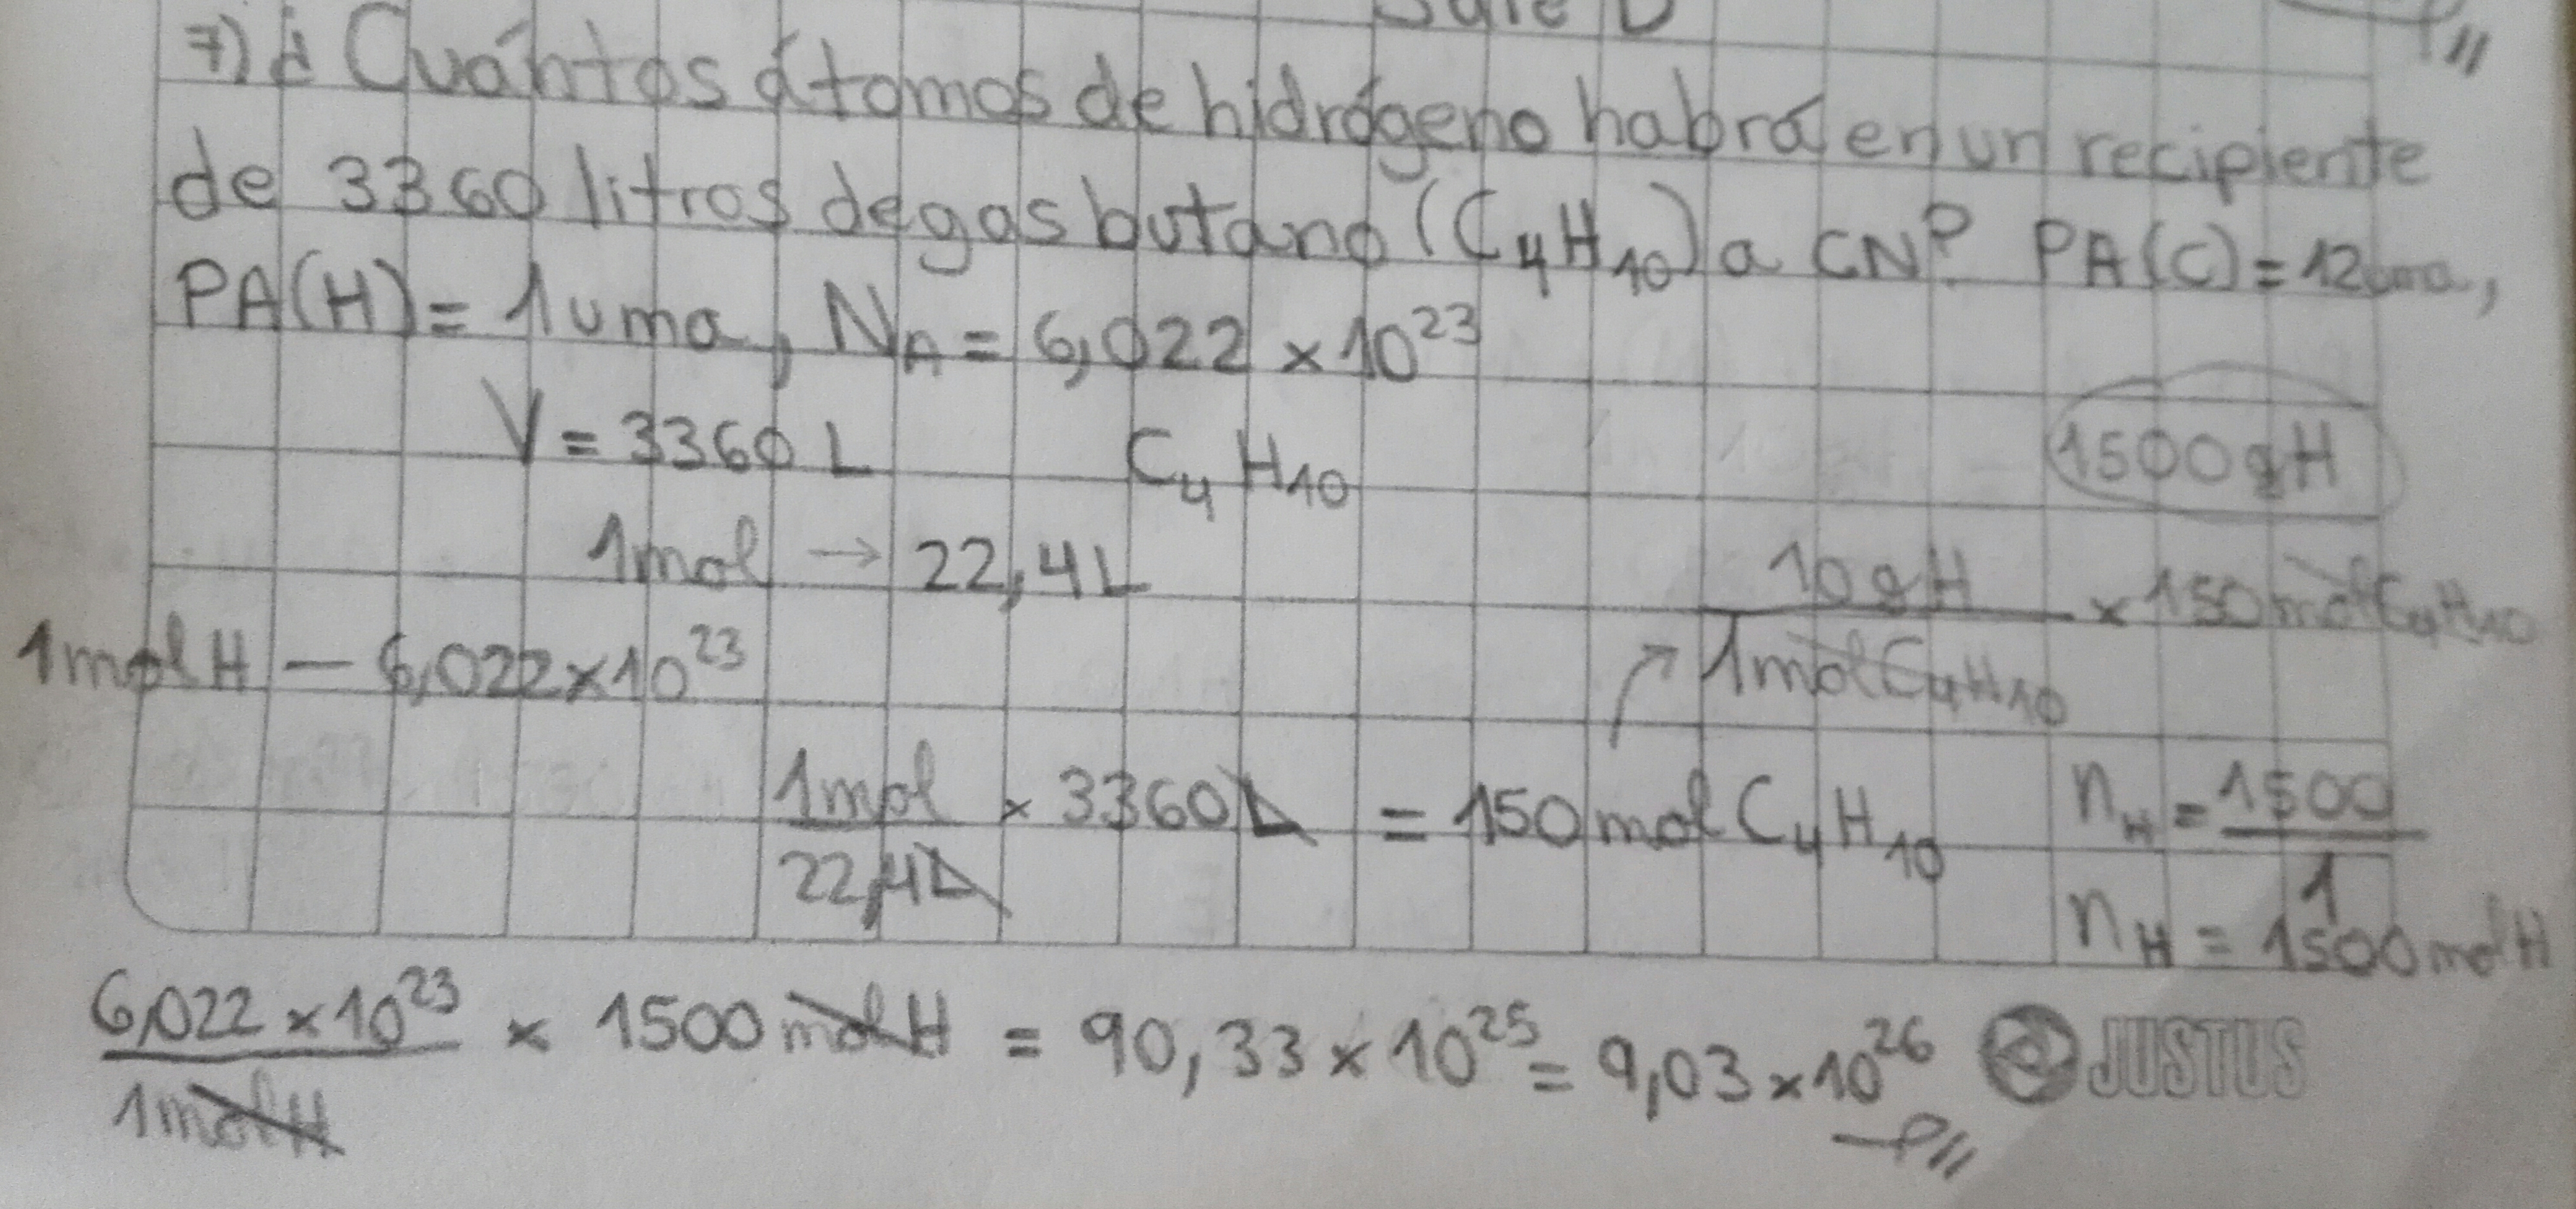 7) ¿Cuántos átomos de hidrógeno habrá en un recipiente
de 3360 litros de gas butano (C₄H₁₀) a CN? PA(C) = 12 uma,
PA(H) = 1 uma, N_A = 6,022 × 10²³
V = 3360 L C₄H₁₀ 1500 g H
1 mol → 22,4 L
10 g H / 1 mol C₄H₁₀ × 150 mol C₄H₁₀
1 mol H — 6,022 × 10²³
1 mol / 22,4 L × 3360 L = 150 mol C₄H₁₀
n_H = 1500 / 1
n_H = 1500 mol H
6,022 × 10²³ / 1 mol H × 1500 mol H = 90,33 × 10²⁵ = 9,03 × 10²⁶
JUSTUS